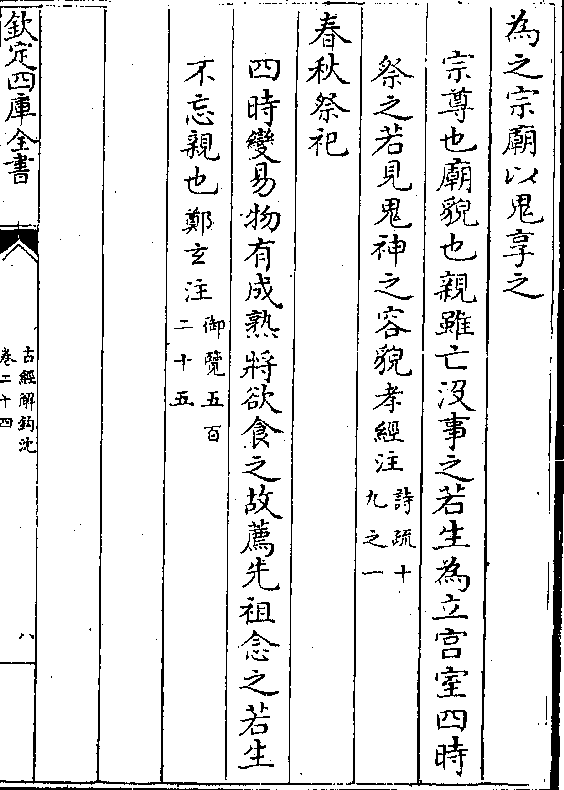 為之宗廟以鬼享之
宗尊也廟貌也親雖亡没事之若生為立宫室四時
祭之若見鬼神之容貌孝經注詩疏十
九之一
春秋祭祀
四時變易物有成熟將欲食之故薦先祖念之若生
不忘親也鄭玄注御覽五百
二十五
欽定四庫全書
古經解鈎沈
卷二十四
八